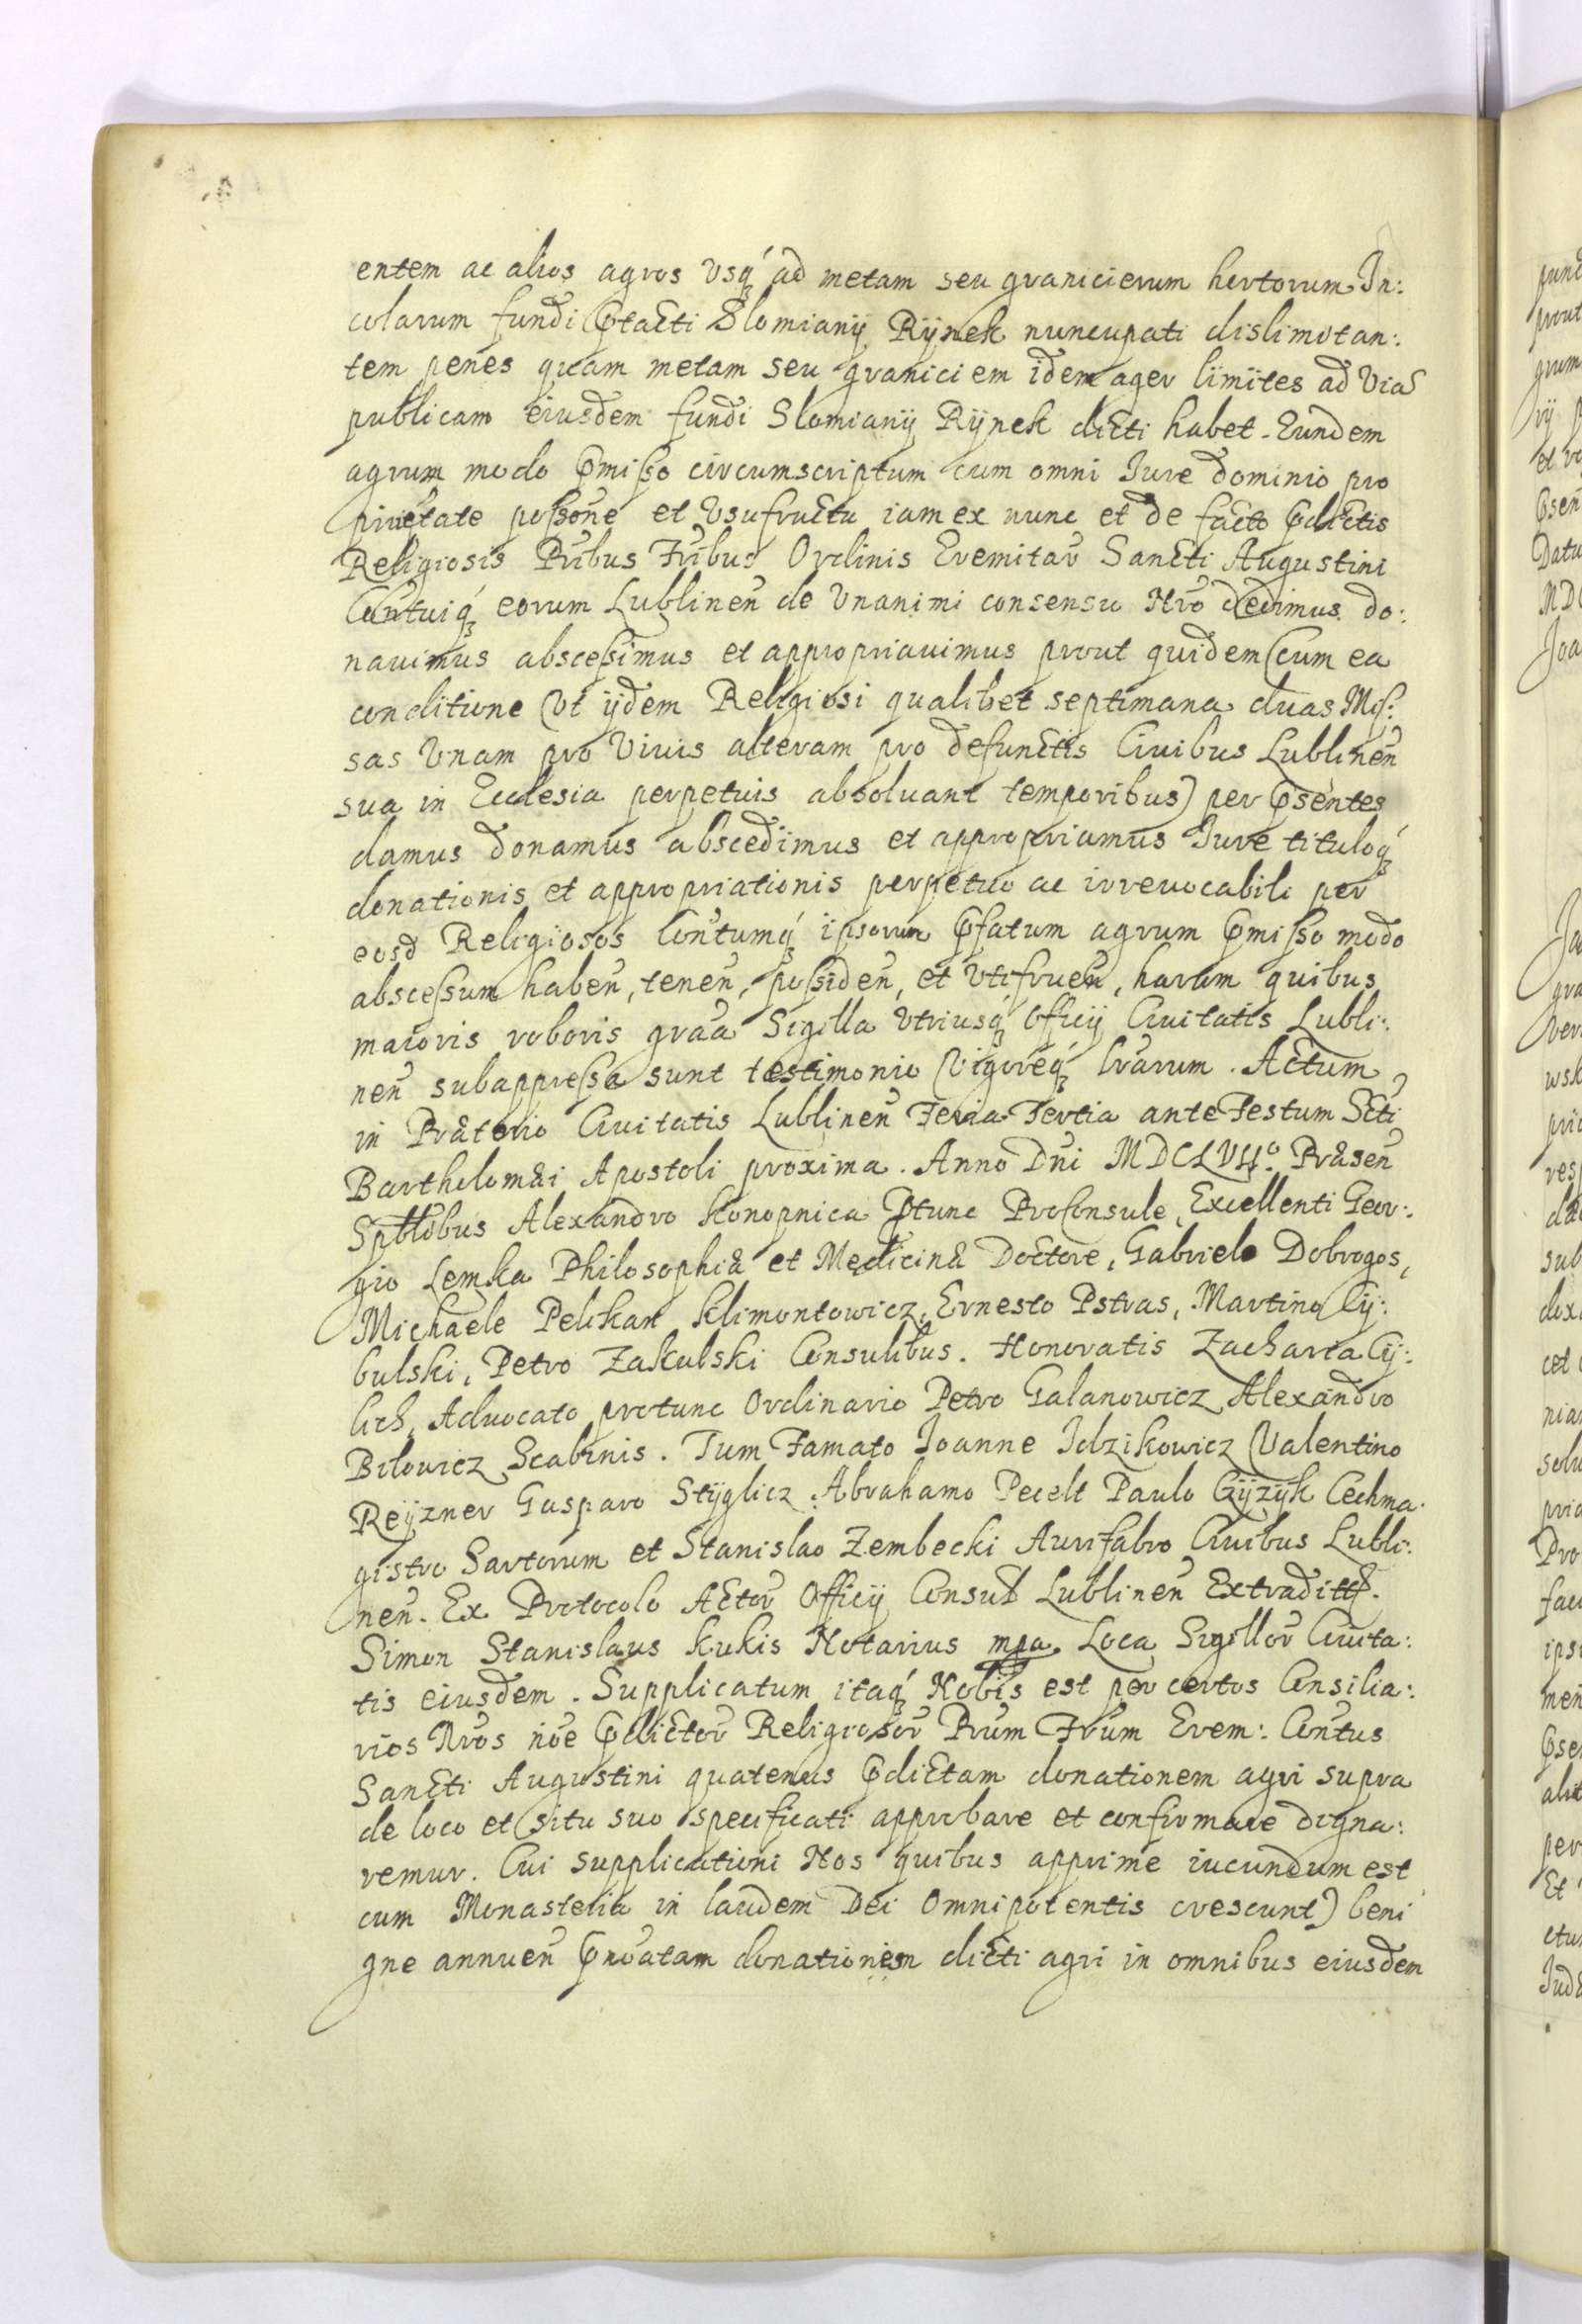 entem ac alios agros vsq́ ad metam seu granicierum hortorum In:
colarum fundi p̃tacti Slomianÿ Rÿnek nuncupati dislimitan:
tem penes quam metam seu graniciem idem ager limites ad Viã
publicam eiusdem fundi Slomianÿ Rÿnek dicti habet. Eundem
agrum modo p̃misso circumscriptum cum omni Iure dominio pro
prietate possoñe et Vsufructu iam ex nunc et de facto p̃dictis
Religiosis P̃ribus Fr̃ibus Ordinis Eremitar̃ Sancti Augustini
Con̄tuiq́ eorum Lublineñ de Vnanimi consensu Nr̃o dedimus do:
nauimus abscessimus et appropriauimus prout quidem (cum ea
conditione Vt ijdem Religiosi qualibet septimana duas Mis:
sas Vnam pro Viuis alteram pro defunctis Ciuibus Lublineñ
sua in Ecclesia perpetuis absoluant temporibus) per p̃sentes
damus donamus abscedimus et appropriamus Iure tituloq́
donationis et appropriationis perpetuo ac irreuocabili per
eosd Religiosos Con̄tumq́ ipsorum p̃fatum agrum p̃misso modo
abscessum habeñ, teneñ, possideñ, et Vtifrueñ, harum quibus
maioris roboris grãa Sigilla Vtriusq́ Officij Ciuitatis Lubli:
neñ subappressa sunt testimonio Vigoreq́ lr̃arum. Actum
in Prætorio Ciuitatis Lublineñ Feria Tertia ante Festum Scti
Bartholomæi Apostoli proxima. Anno Dñi MDCLVII.º Præseñ
Sp̃ttlibus Alexandro Konopnica p̃tunc ProConsule, Excellenti Geor:
gio Lemka Philosophiæ et Medicinæ Doctore, Gabriele Dobrogos,
Michaele Pelikan Klimontowicz, Ernesto Pstras, Martino Cÿ:
bulski, Petro Zakulski Consulibus. Honoratis Zacharia Cÿ:
lich, Aduocato protunc Ordinario Petro Galanowicz Alexandro
Bilowicz Scabinis. Tum Famato Ioanne Idzikowicz Valentino
Reÿzner Gasparo Stÿglicz Abrahamo Pecelt Paulo Cÿzÿk Cechma:
gistro Sartorum et Stanislao Zembecki Aurifabro Ciuibus Lubli:
neñ. Ex Protocolo Actor̃ Officij Consul Lublineñ Extradit.
Simon Stanislaus Kukis Notarius mpa. Loca Sigillor̃ Ciuita:
tis eiusdem. Supplicatum itaq́ Nobis est per certos Consilia:
rios Nr̃os nõe p̃dictor̃ Religiosor̃ Pr̃um Fr̃um Erem: Con̄tus
Sancti Augustini quatenus p̃dictam donationem agri supra
de loco et situ suo specificati approbare et confirmare digna:
remur. Cui supplicationi Nos quibus apprime iucundum est
cum Monasteria in laudem Dei Omnipotentis crescunt) beni
gne annueñ p̃noatam donationem dicti agri in omnibus eiusdem